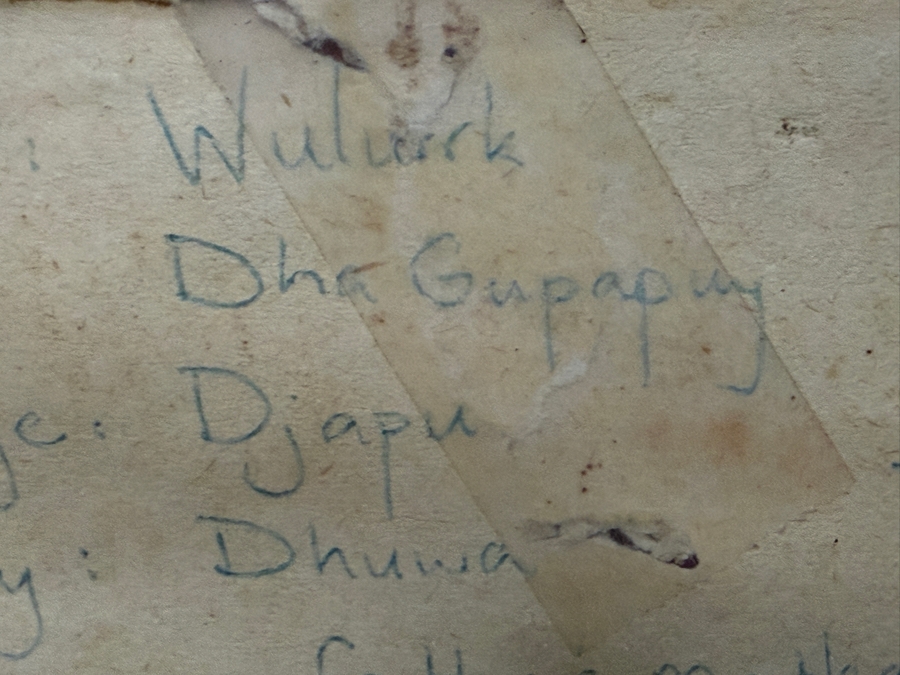 : Wulurrk
Dha Gupapuy
ge: Djapu
y: Dhuwa